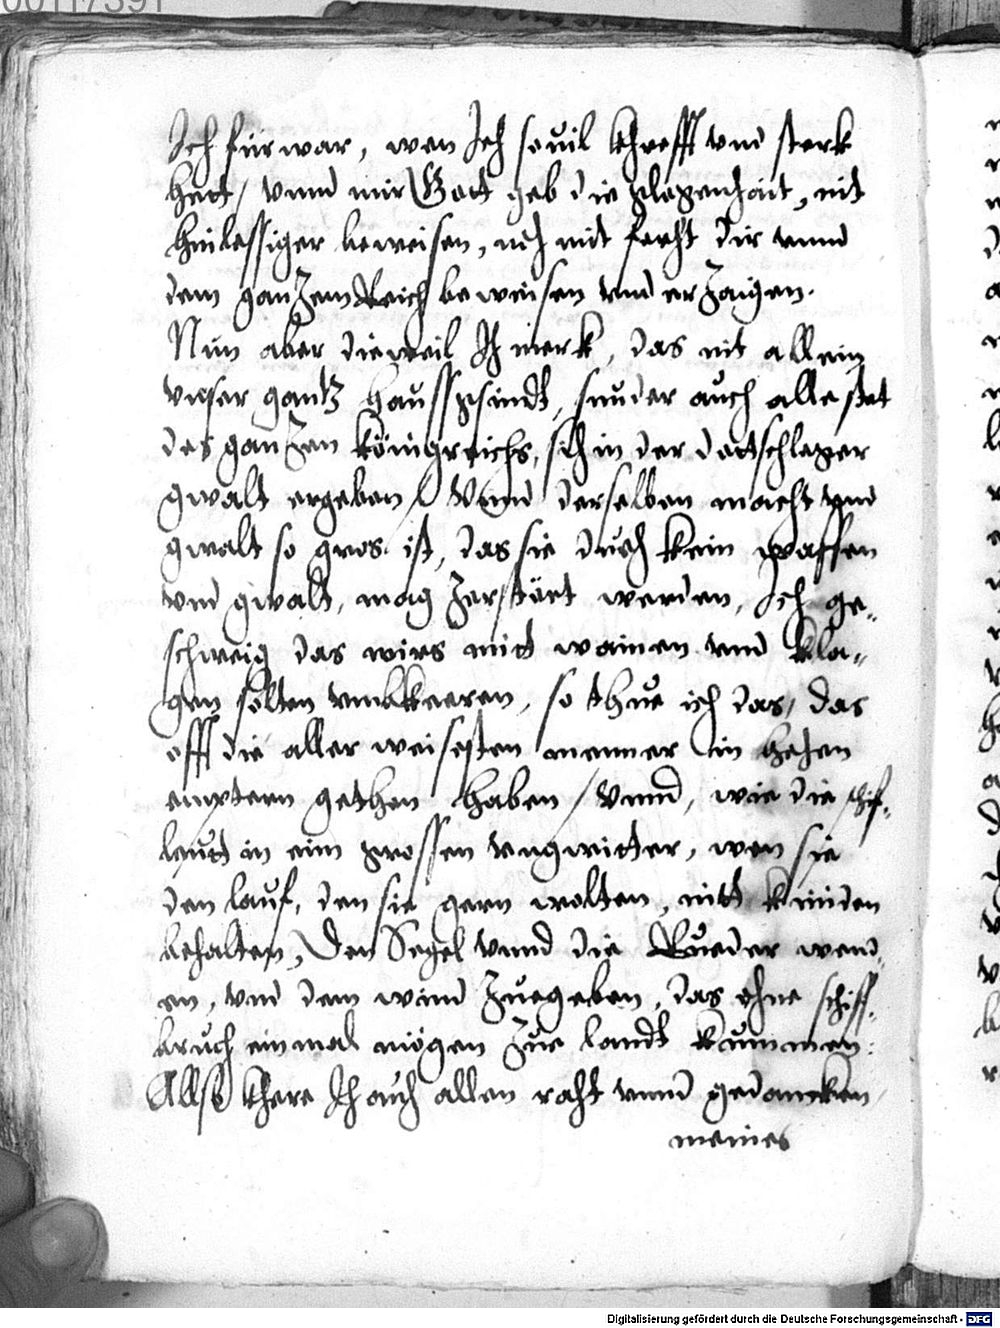 00117391
Ich fürwar, wen Ich souil khrefft vnd sterk
hett / vnnd mir Gott geb die glegenhait, nit
hinlessiger beweisen, noch mit forcht dir vnnd
dem ganzem Reich beweisen vnd erzaigen.
Nun aber dieweil Ich merk, das nit allein
vnser gantz haussgsindt, sunder auch alle stet
des ganzen königreichs, sich in der dottschleger
gwalt ergeben / Vnnd derselben macht vnd
gwalt so gros ist, das sie durch kein waffen
vnd gwalt, mag zerstört werden, Ich ge„
schweig das wirs mitt wainen vnd kla„
gen solten vmbkeeren, so thue ich das, das
offt die aller weisesten menner in hohen
emptern gethon haben / Vnnd, wie die schif„
leutt in eim grossen vngwitter, wen sie
den lauf, den sie gern wolten, nitt künden
behalten, Den Segel vnnd die Rueder wend„
en, vnd dem wind zuegeben, das ohne schiff„
bruch einmal mögen zue landt kummen:
Allso khere Ich auch allen raht vnnd gedancken
meines
Digitalisierung gefördert durch die Deutsche Forschungsgemeinschaft - DFG